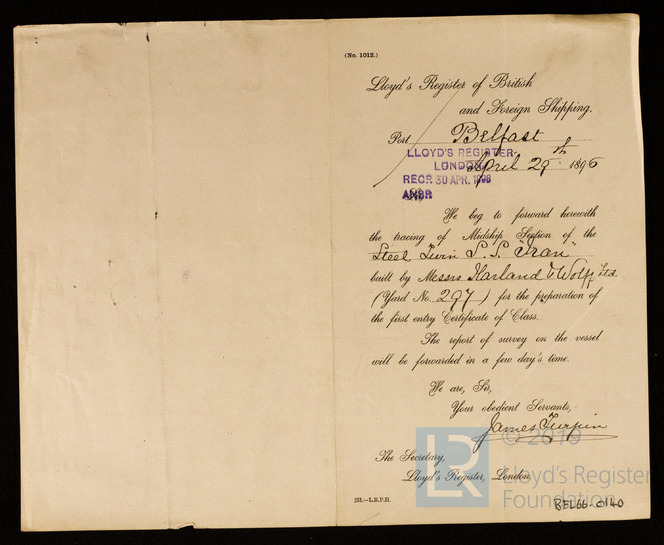 (No. 1012.)
Lloyd's Register of British
and Foreign Shipping.
Port Belfast
April 29th 1896
LLOYD'S REGISTER,
LONDON
RECD 30 APR. 1896
ANSR
We beg to forward herewith
the tracing of Midship Section of the
Steel Twin S.S. "Iran"
built by Messrs Harland & Wolff Ltd
(Yard No. 297) for the preparation of
the first entry Certificate of Class.
The report of survey on the vessel
will be forwarded in a few day's time.
We are, Sir,
Your obedient Servants,
James Turpin
The Secretary,
Lloyd's Register, London.
251.—L.R.P.H.
LR
© 2019
Lloyd's Register
Foundation
BEL66-0140